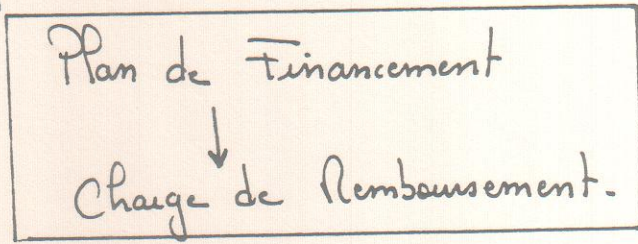 Plan de Financement
↓
Charge de Remboursement.